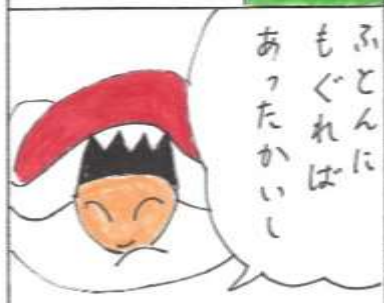 ふとんに
もぐれば
あったかいし